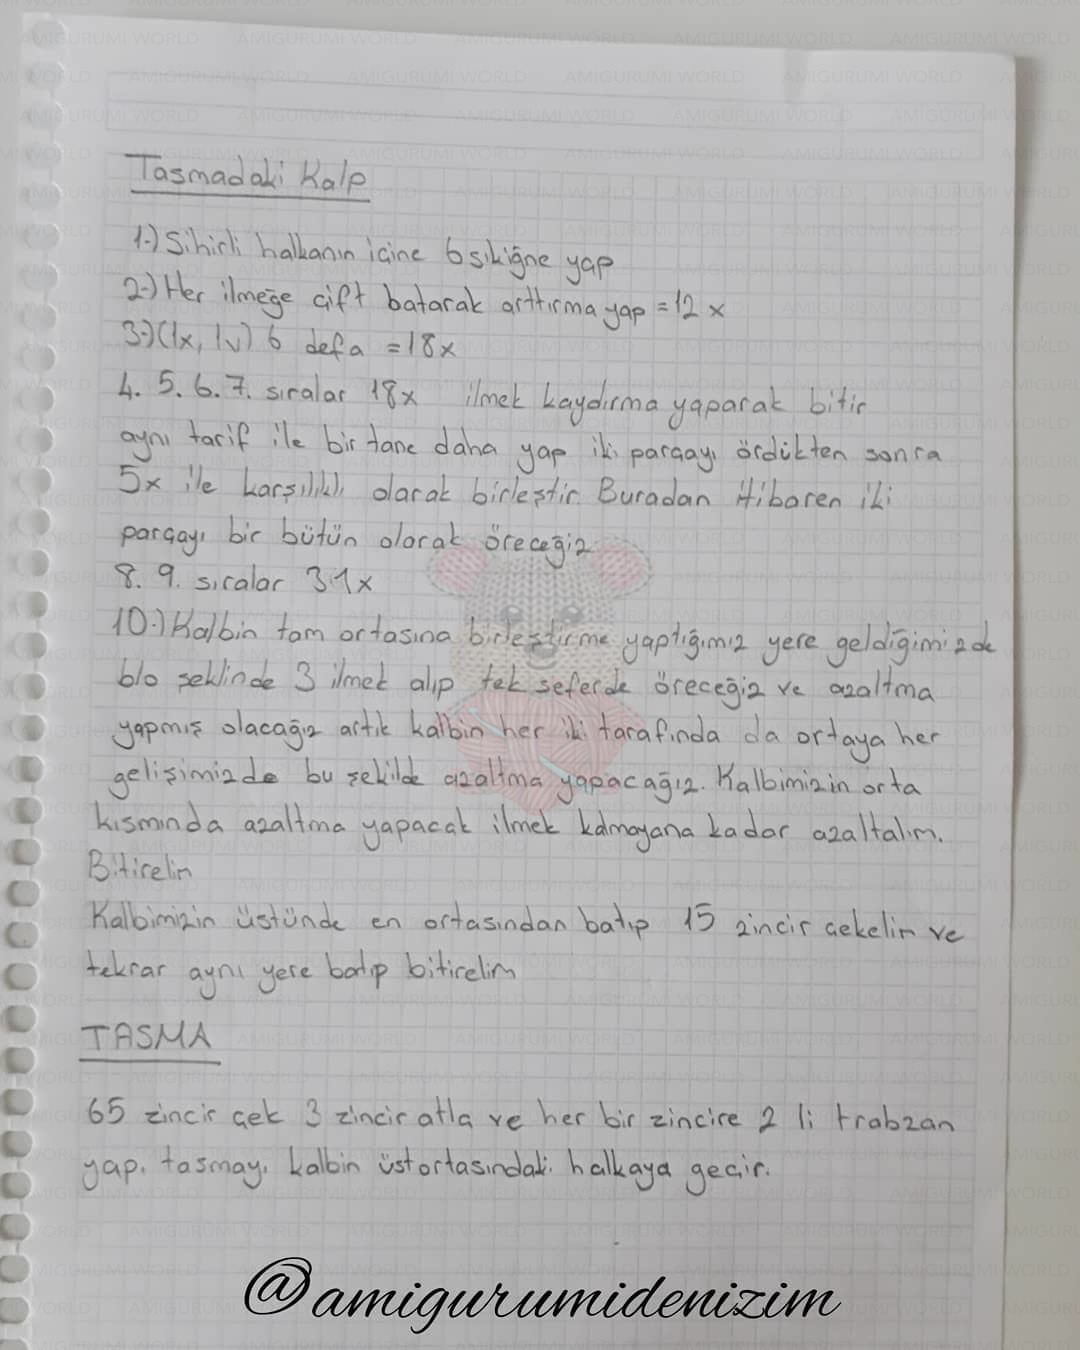 Tasmadaki Kalp
1-) Sihirli halkanın içine 6 sıkiğne yap
2-) Her ilmeğe çift batarak arttırma yap = 12 x
3-) (1x, 1v) 6 defa = 18x
4. 5. 6. 7. sıralar 18x ilmek kaydırma yaparak bitir
aynı tarif ile bir tane daha yap iki parçayı ördükten sonra
5x ile karşılıklı olarak birleştir. Buradan itibaren iki
parçayı bir bütün olarak öreceğiz
8. 9. sıralar 31x
10-) Kalbin tam ortasına birleştirme yaptığımız yere geldiğimizde
blo şeklinde 3 ilmek alıp tek seferde öreceğiz ve azaltma
yapmış olacağız artık kalbin her iki tarafında da ortaya her
gelişimizde bu şekilde azaltma yapacağız. Kalbimizin orta
kısmında azaltma yapacak ilmek kalmayana kadar azaltalım.
Bitirelim
Kalbimizin üstünde en ortasından batıp 15 zincir çekelim ve
tekrar aynı yere batıp bitirelim
TASMA
65 zincir çek 3 zincir atla ve her bir zincire 2 li trabzan
yap. tasmayı kalbin üst ortasındaki halkaya geçir.
@amigurumidenizim
AMIGURUMI WORLD